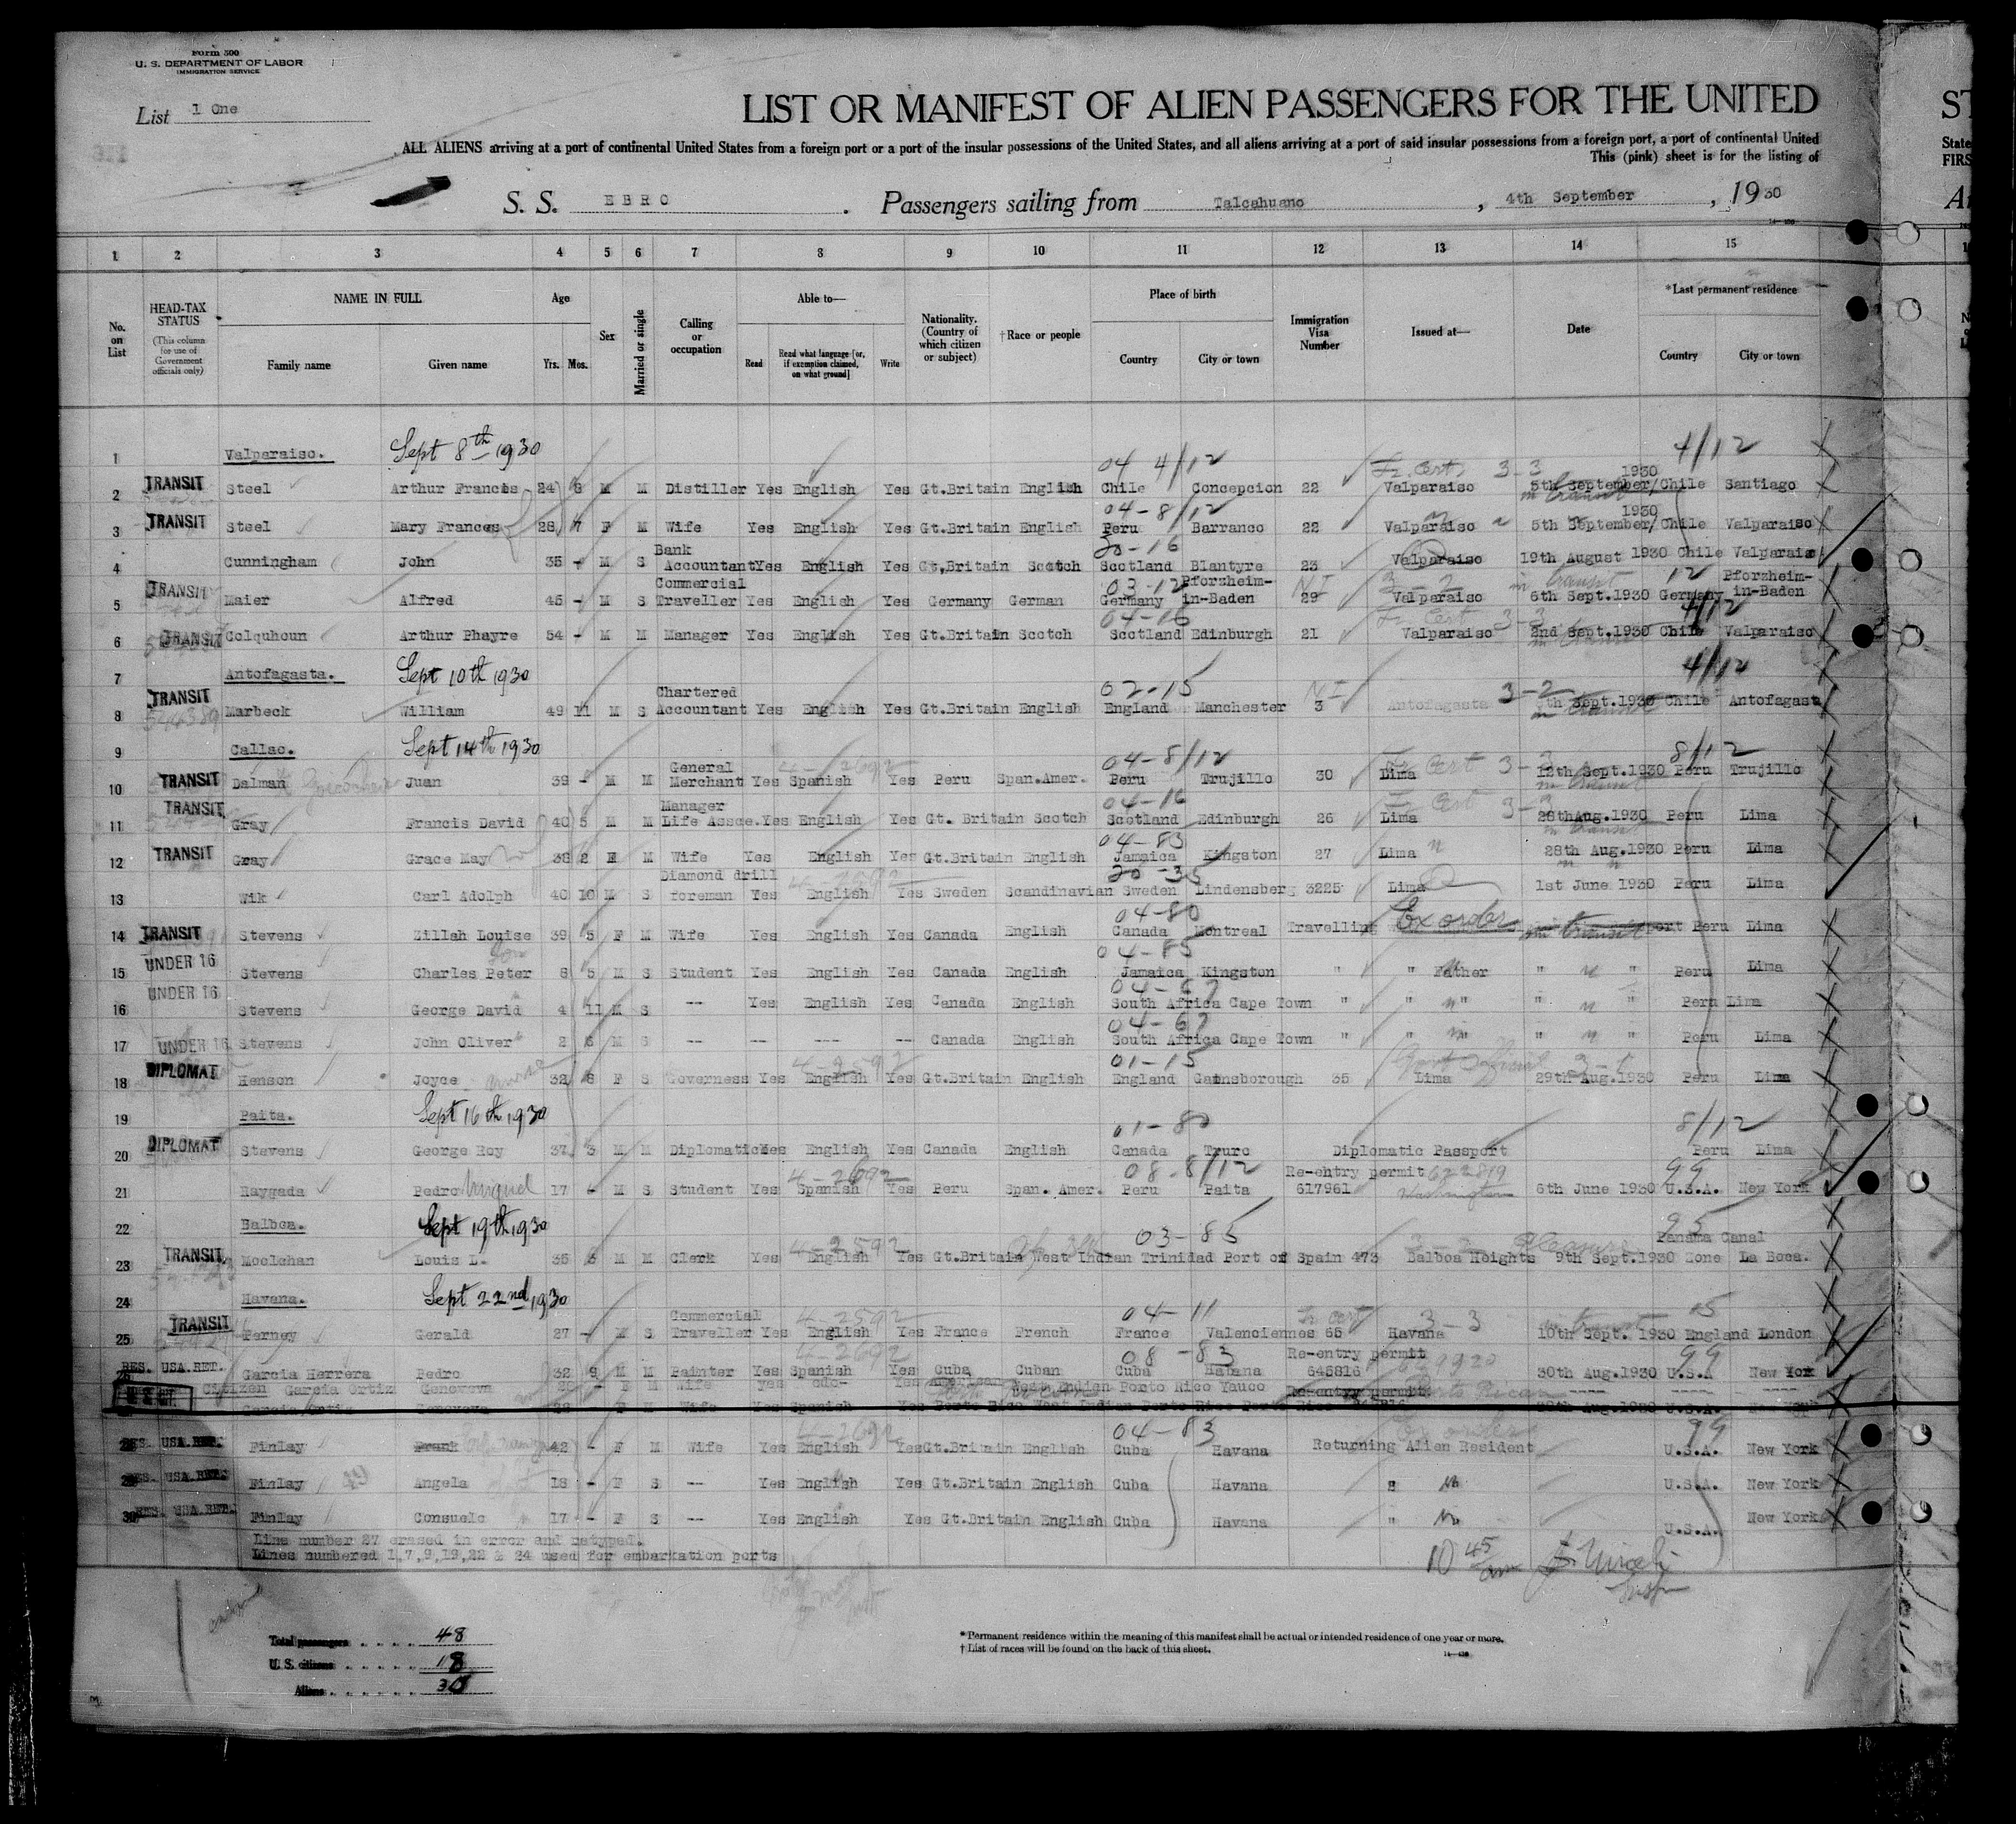 Form 500
U. S. DEPARTMENT OF LABOR
IMMIGRATION SERVICE
List 1 One
LIST OR MANIFEST OF ALIEN PASSENGERS FOR THE UNITED
ALL ALIENS arriving at a port of continental United States from a foreign port or a port of the insular possessions of the United States, and all aliens arriving at a port of said insular possessions from a foreign port, a port of continental United
This (pink) sheet is for the listing of
S. S. EBRO. Passengers sailing from Talcahuano, 4th September, 1930
1 2 3 4 5 6 7 8 9 10 11 12 13 14 15
No. on List
HEAD-TAX STATUS (This column for use of Government officials only)
NAME IN FULL Family name Given name
Age Yrs. Mos.
Sex
Married or single
Calling or occupation
Able to— Read Read what language [or, if exemption claimed, on what ground] Write
Nationality. (Country of which citizen or subject)
†Race or people
Place of birth Country City or town
Immigration Visa Number
Issued at—
Date
*Last permanent residence Country City or town
1 Valparaiso. Sept 8th 1930 04 4/12 4/12
2 TRANSIT Steel Arthur Francis 24 8 M M Distiller Yes English Yes Gt.Britain English Chile Concepcion 22 Valparaiso 5th September/1930 Chile Santiago
04-8/12
3 TRANSIT Steel Mary Frances 28 7 F M Wife Yes English Yes Gt.Britain English Peru Barranco 22 Valparaiso 5th September/1930 Chile Valparaiso
20-16
4 Cunningham John 35 - M S Bank Accountant Yes English Yes Gt.Britain Scotch Scotland Blantyre 23 Valparaiso 19th August 1930 Chile Valparaiso
03-12
5 TRANSIT Maier Alfred 45 - M S Commercial Traveller Yes English Yes Germany German Germany Pforzheim-in-Baden 29 Valparaiso 6th Sept.1930 Germany Pforzheim-in-Baden
04-16
6 TRANSIT Colquhoun Arthur Phayre 54 - M M Manager Yes English Yes Gt.Britain Scotch Scotland Edinburgh 21 Valparaiso 2nd Sept.1930 Chile Valparaiso
7 Antofagasta. Sept 10th 1930 4/12
02-15
8 TRANSIT Marbeck William 49 11 M S Chartered Accountant Yes English Yes Gt.Britain English England Manchester 3 Antofagasta 3-2 Sept.1930 Chile Antofagasta
9 Callao. Sept 14th 1930 04-8/12 8/12
10 TRANSIT Dalman Juan 39 - M M General Merchant Yes Spanish Yes Peru Span.Amer. Peru Trujillo 30 Lima 12th Sept.1930 Peru Trujillo
04-16
11 TRANSIT Gray Francis David 40 5 M M Manager Life Assce. Yes English Yes Gt. Britain Scotch Scotland Edinburgh 26 Lima 28th Aug.1930 Peru Lima
04-83
12 TRANSIT Gray Grace May 38 2 F M Wife Yes English Yes Gt.Britain English Jamaica Kingston 27 Lima 28th Aug.1930 Peru Lima
20-35
13 Wik Carl Adolph 40 10 M S Diamond drill foreman Yes English Yes Sweden Scandinavian Sweden Lindensberg 3225 Lima 1st June 1930 Peru Lima
04-80
14 TRANSIT Stevens Zillah Louise 39 5 F M Wife Yes English Yes Canada English Canada Montreal Travelling Ex order Peru Lima
04-83
15 UNDER 16 Stevens Charles Peter 8 5 M S Student Yes English Yes Canada English Jamaica Kingston " " Father " " Peru Lima
04-67
16 UNDER 16 Stevens George David 4 11 M S -- Yes English Yes Canada English South Africa Cape Town " " " " " Peru Lima
04-67
17 UNDER 16 Stevens John Oliver 2 6 M S -- -- --- -- Canada English South Africa Cape Town " " " " " Peru Lima
01-15
18 DIPLOMAT Henson Joyce 32 8 F S Governess Yes English Yes Gt.Britain English England Gainsborough 35 Lima 29th Aug.1930 Peru Lima
19 Paita. Sept 16th 1930 01-80 8/12
20 DIPLOMAT Stevens George Roy 37 3 M M Diplomatic Yes English Yes Canada English Canada Truro Diplomatic Passport Peru Lima
4-2692 08-8/12 Re-entry permit 622819 99
21 Raygada Pedro Miguel 17 - M S Student Yes Spanish Yes Peru Span. Amer. Peru Paita 617961 Washington 6th June 1930 U.S.A. New York
22 Balboa. Sept 19th 1930 03-85 95
23 TRANSIT Moolchan Louis L. 35 3 M M Clerk Yes English Yes Gt.Britain West Indian Trinidad Port of Spain 473 Balboa Heights 9th Sept.1930 Panama Canal Zone La Boca.
24 Havana. Sept 22nd 1930
4-2592 04-11 3-3 05
25 TRANSIT Perney Gerald 27 - M S Commercial Traveller Yes English Yes France French France Valenciennes 65 Havana 10th Sept. 1930 England London
4-2692 08-83 Re-entry permit 99
26 RES. USA.RET. Garcia Herrera Pedro 32 9 M M Painter Yes Spanish Yes Cuba Cuban Cuba Habana 646816 30th Aug.1930 U.S.A New York
Citizen Garcia Ortiz Genoveva F M Wife Yes -do- Yes American West Indien Porto Rico Yauco Re-entry permit ---- ---- ----
04-83 99
28 RES. USA.RET. Finlay Frank 42 - F M Wife Yes English Yes Gt.Britain English Cuba Havana Returning Alien Resident U.S.A. New York
29 RES. USA.RET. Finlay Angela 18 - F S -- Yes English Yes Gt.Britain English Cuba Havana " U.S.A. New York
30 RES. USA.RET. Finlay Consuelo 17 - F S -- Yes English Yes Gt.Britain English Cuba Havana " U.S.A. New York
Line number 27 erased in error and retyped.
Lines numbered 1,7,9,19,22 & 24 used for embarkation ports
10 45 am
Total passengers . . . . . 48
U. S. citizens . . . . . . 18
Aliens . . . . . . . 30
*Permanent residence within the meaning of this manifest shall be actual or intended residence of one year or more.
† List of races will be found on the back of this sheet.